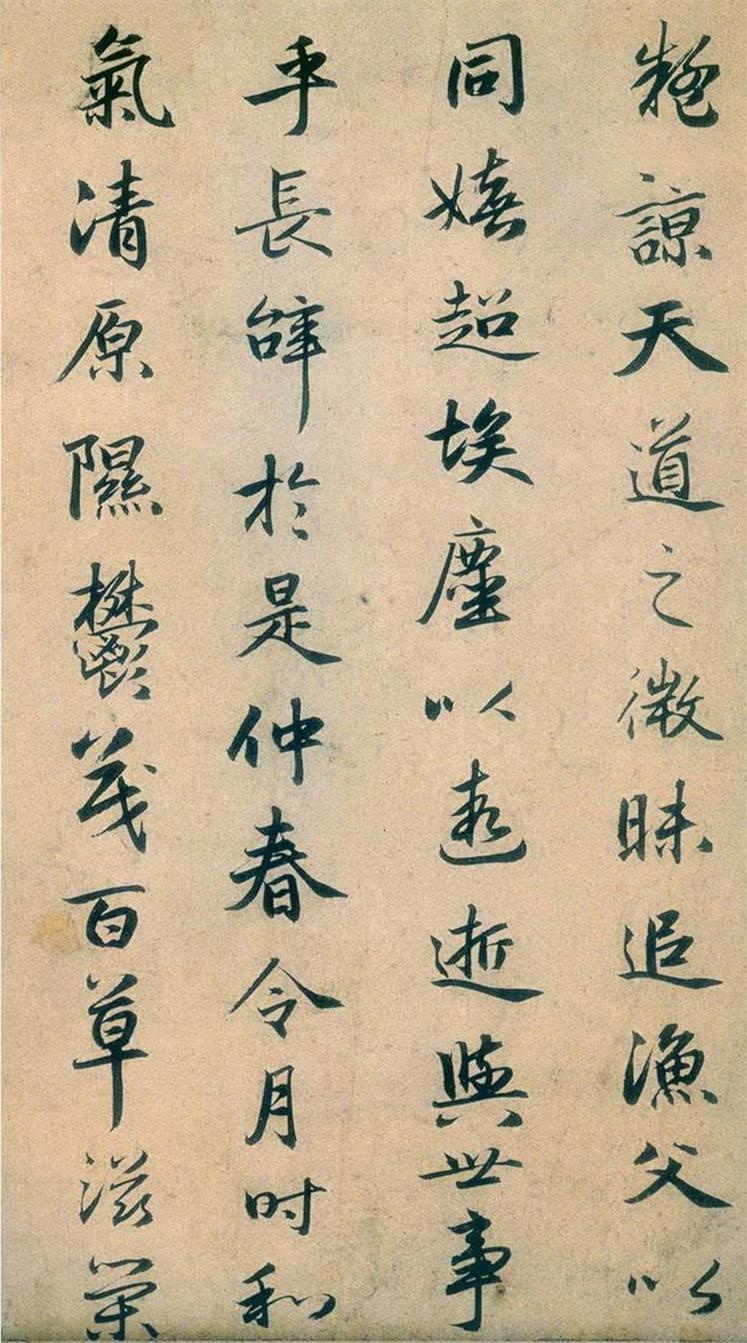 疑諒天道之微昧追漁父以
同嬉超埃塵以遐逝與世事
乎長辭於是仲春令月时和
氣清原隰鬱茂百草滋榮